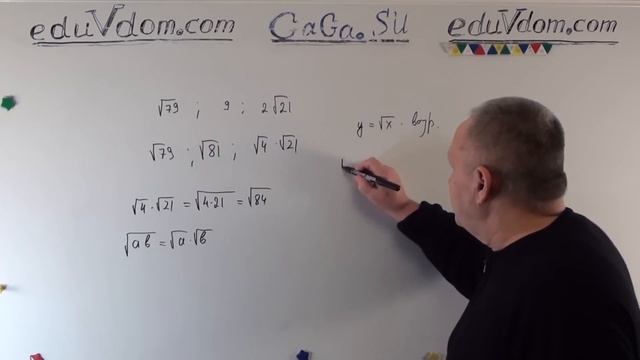 eduVdom.com CaGa.Su eduVdom.com
√79 ; 9 ; 2√21
√79 ; √81 ; √4 · √21
√4 · √21 = √4·21 = √84
√ab = √a · √b
y = √x - возр.